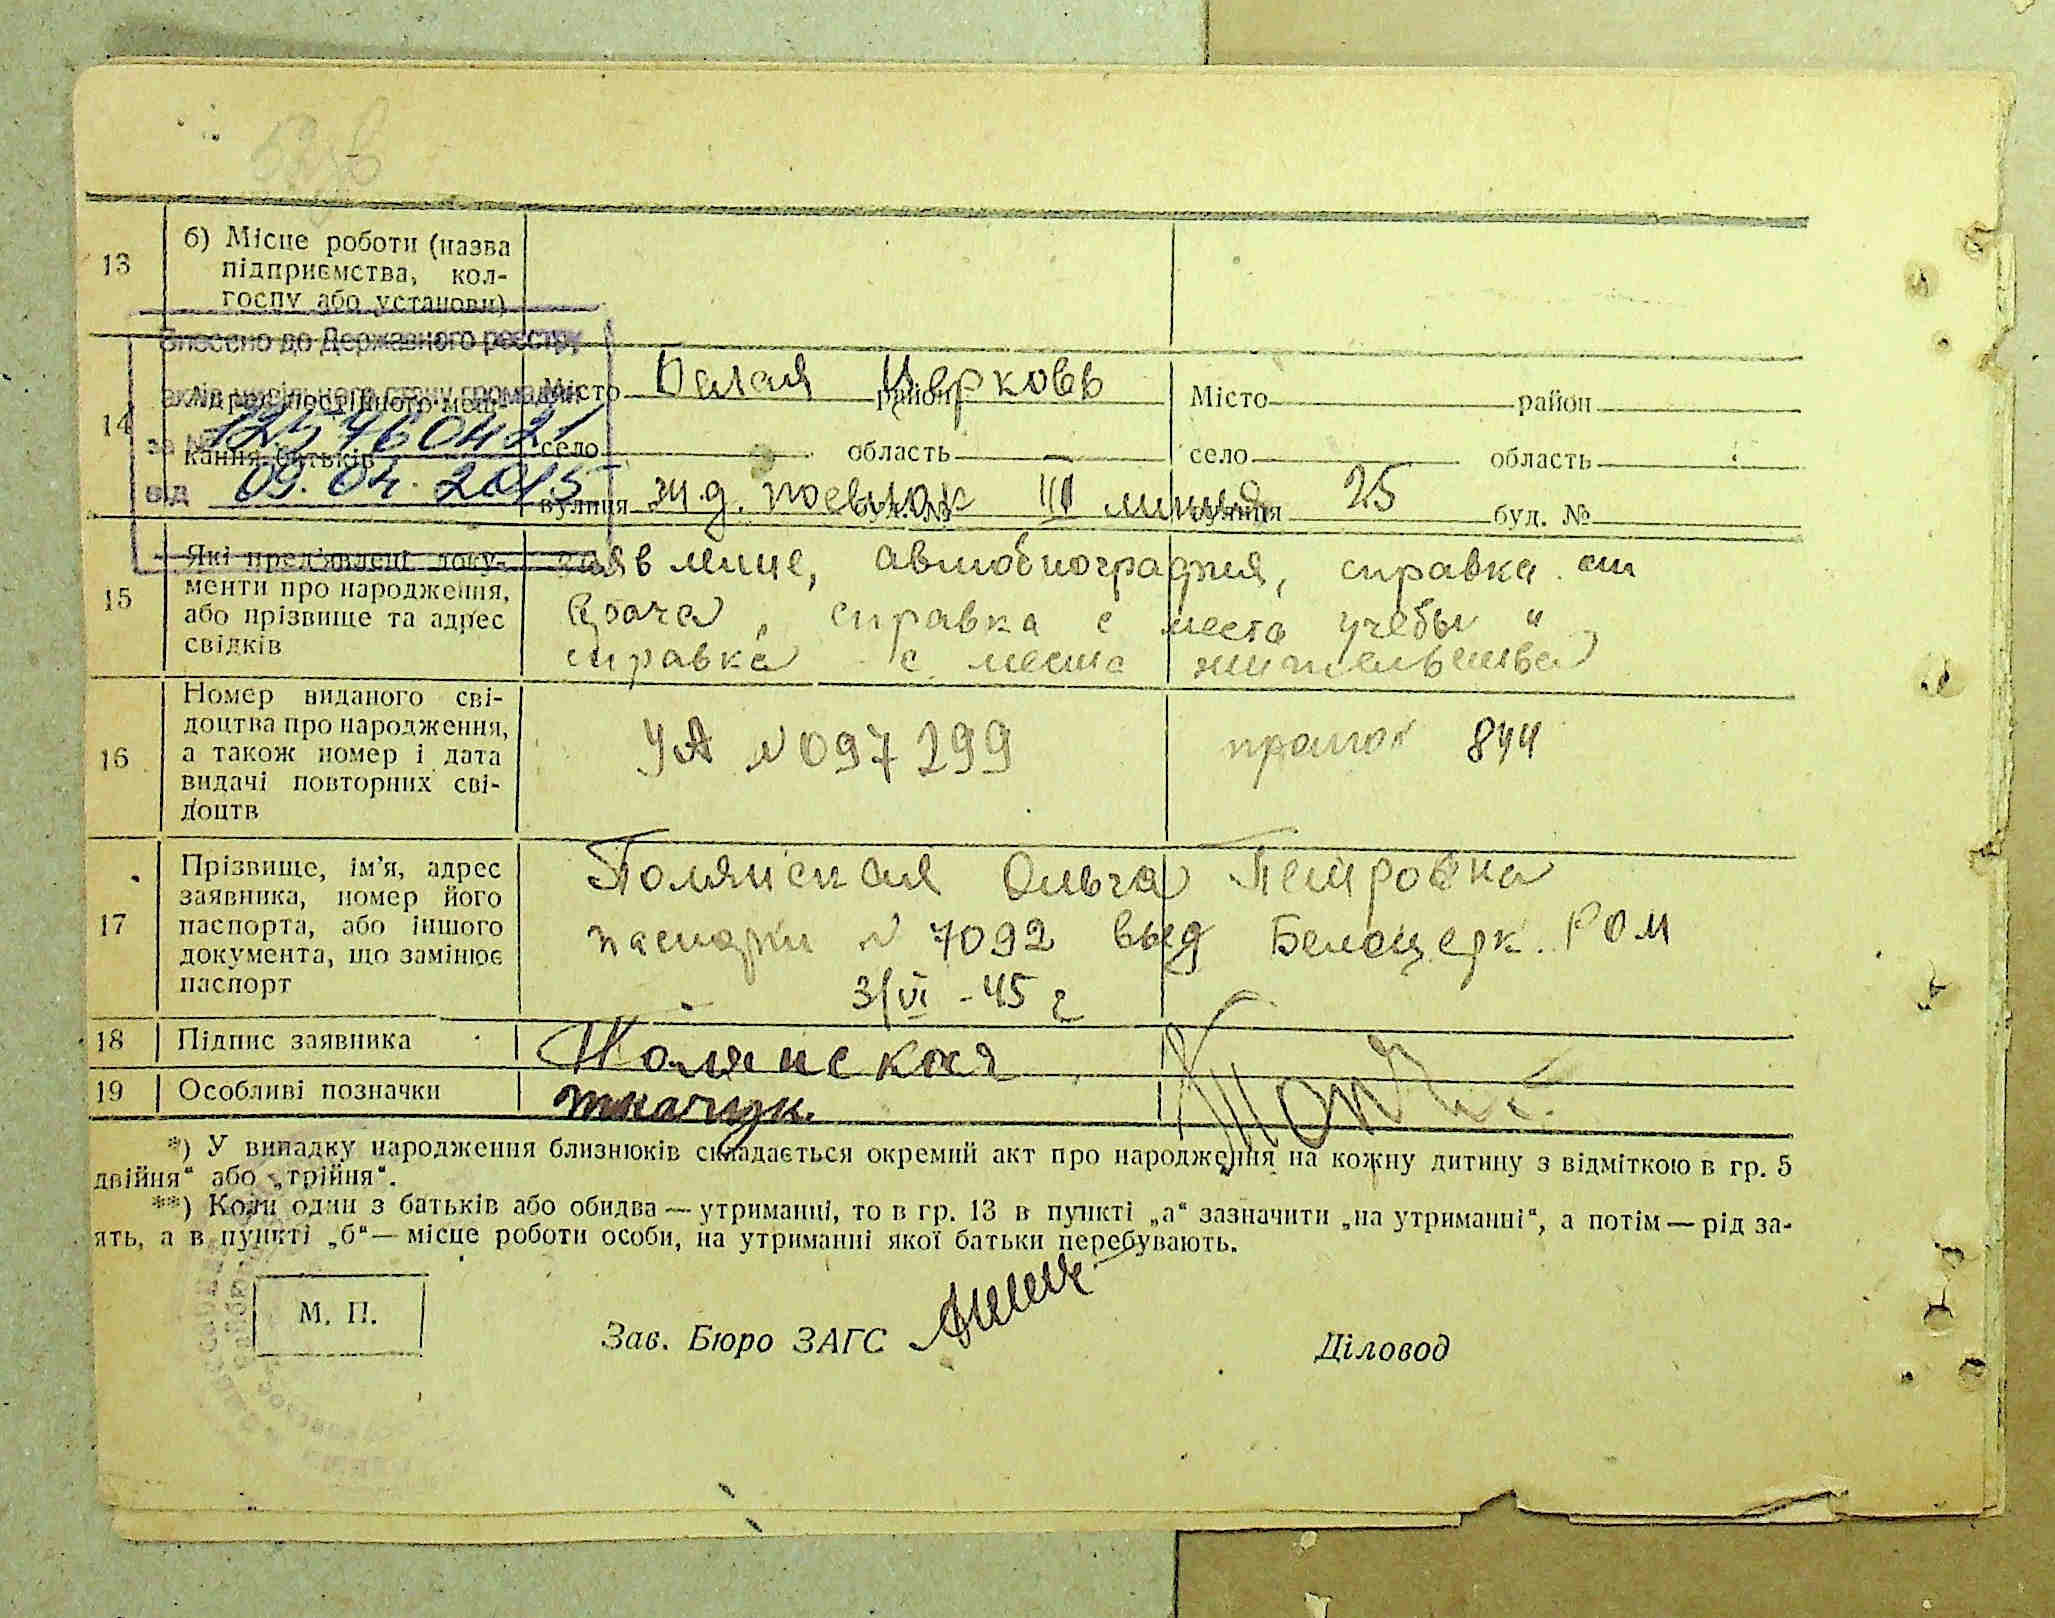 13
б) Місце роботи (назва
підприємства, кол-
госпу або установи)
Внесено до Державного реєстру
актів цивільного стану громадян
за № 12576042
від 09.04.2015
14
кання батьків
Місто Белая Церковь район
село область
вулиця ж.д. поселок III линия 25
Місто район
село область
вулиця буд. №
15
Які пред'явлені доку-
менти про народження,
або прізвище та адрес
свідків
автобиография, справка от
врача, справка с места учебы "
справка с места жительства
16
Номер виданого сві-
доцтва про народження,
а також номер і дата
видачі повторних сві-
доцтв
УА № 097299 844
17
Прізвище, ім'я, адрес
заявника, номер його
паспорта, або іншого
документа, що замінює
паспорт
Полянская Ольга Петровна
паспорт № 7092 выд Белоцерк. РОМ
3/VI - 45 г
18 Підпис заявника
Полянская
19 Особливі позначки
*) У випадку народження близнюків складається окремий акт про народження на кожну дитину з відміткою в гр. 5
двійня“ або „трійня“.
**) Коли один з батьків або обидва — утриманці, то в гр. 13 в пункті „а“ зазначити „на утриманні“, а потім — рід за-
ять, а в пункті „б“ — місце роботи особи, на утриманні якої батьки перебувають.
М. П.
Зав. Бюро ЗАГС
Діловод